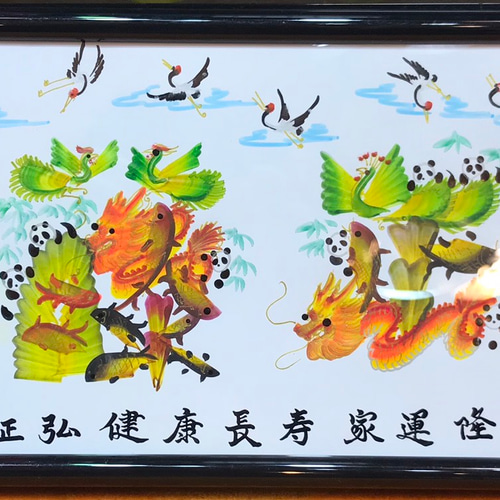 正弘 健康長寿 家運隆